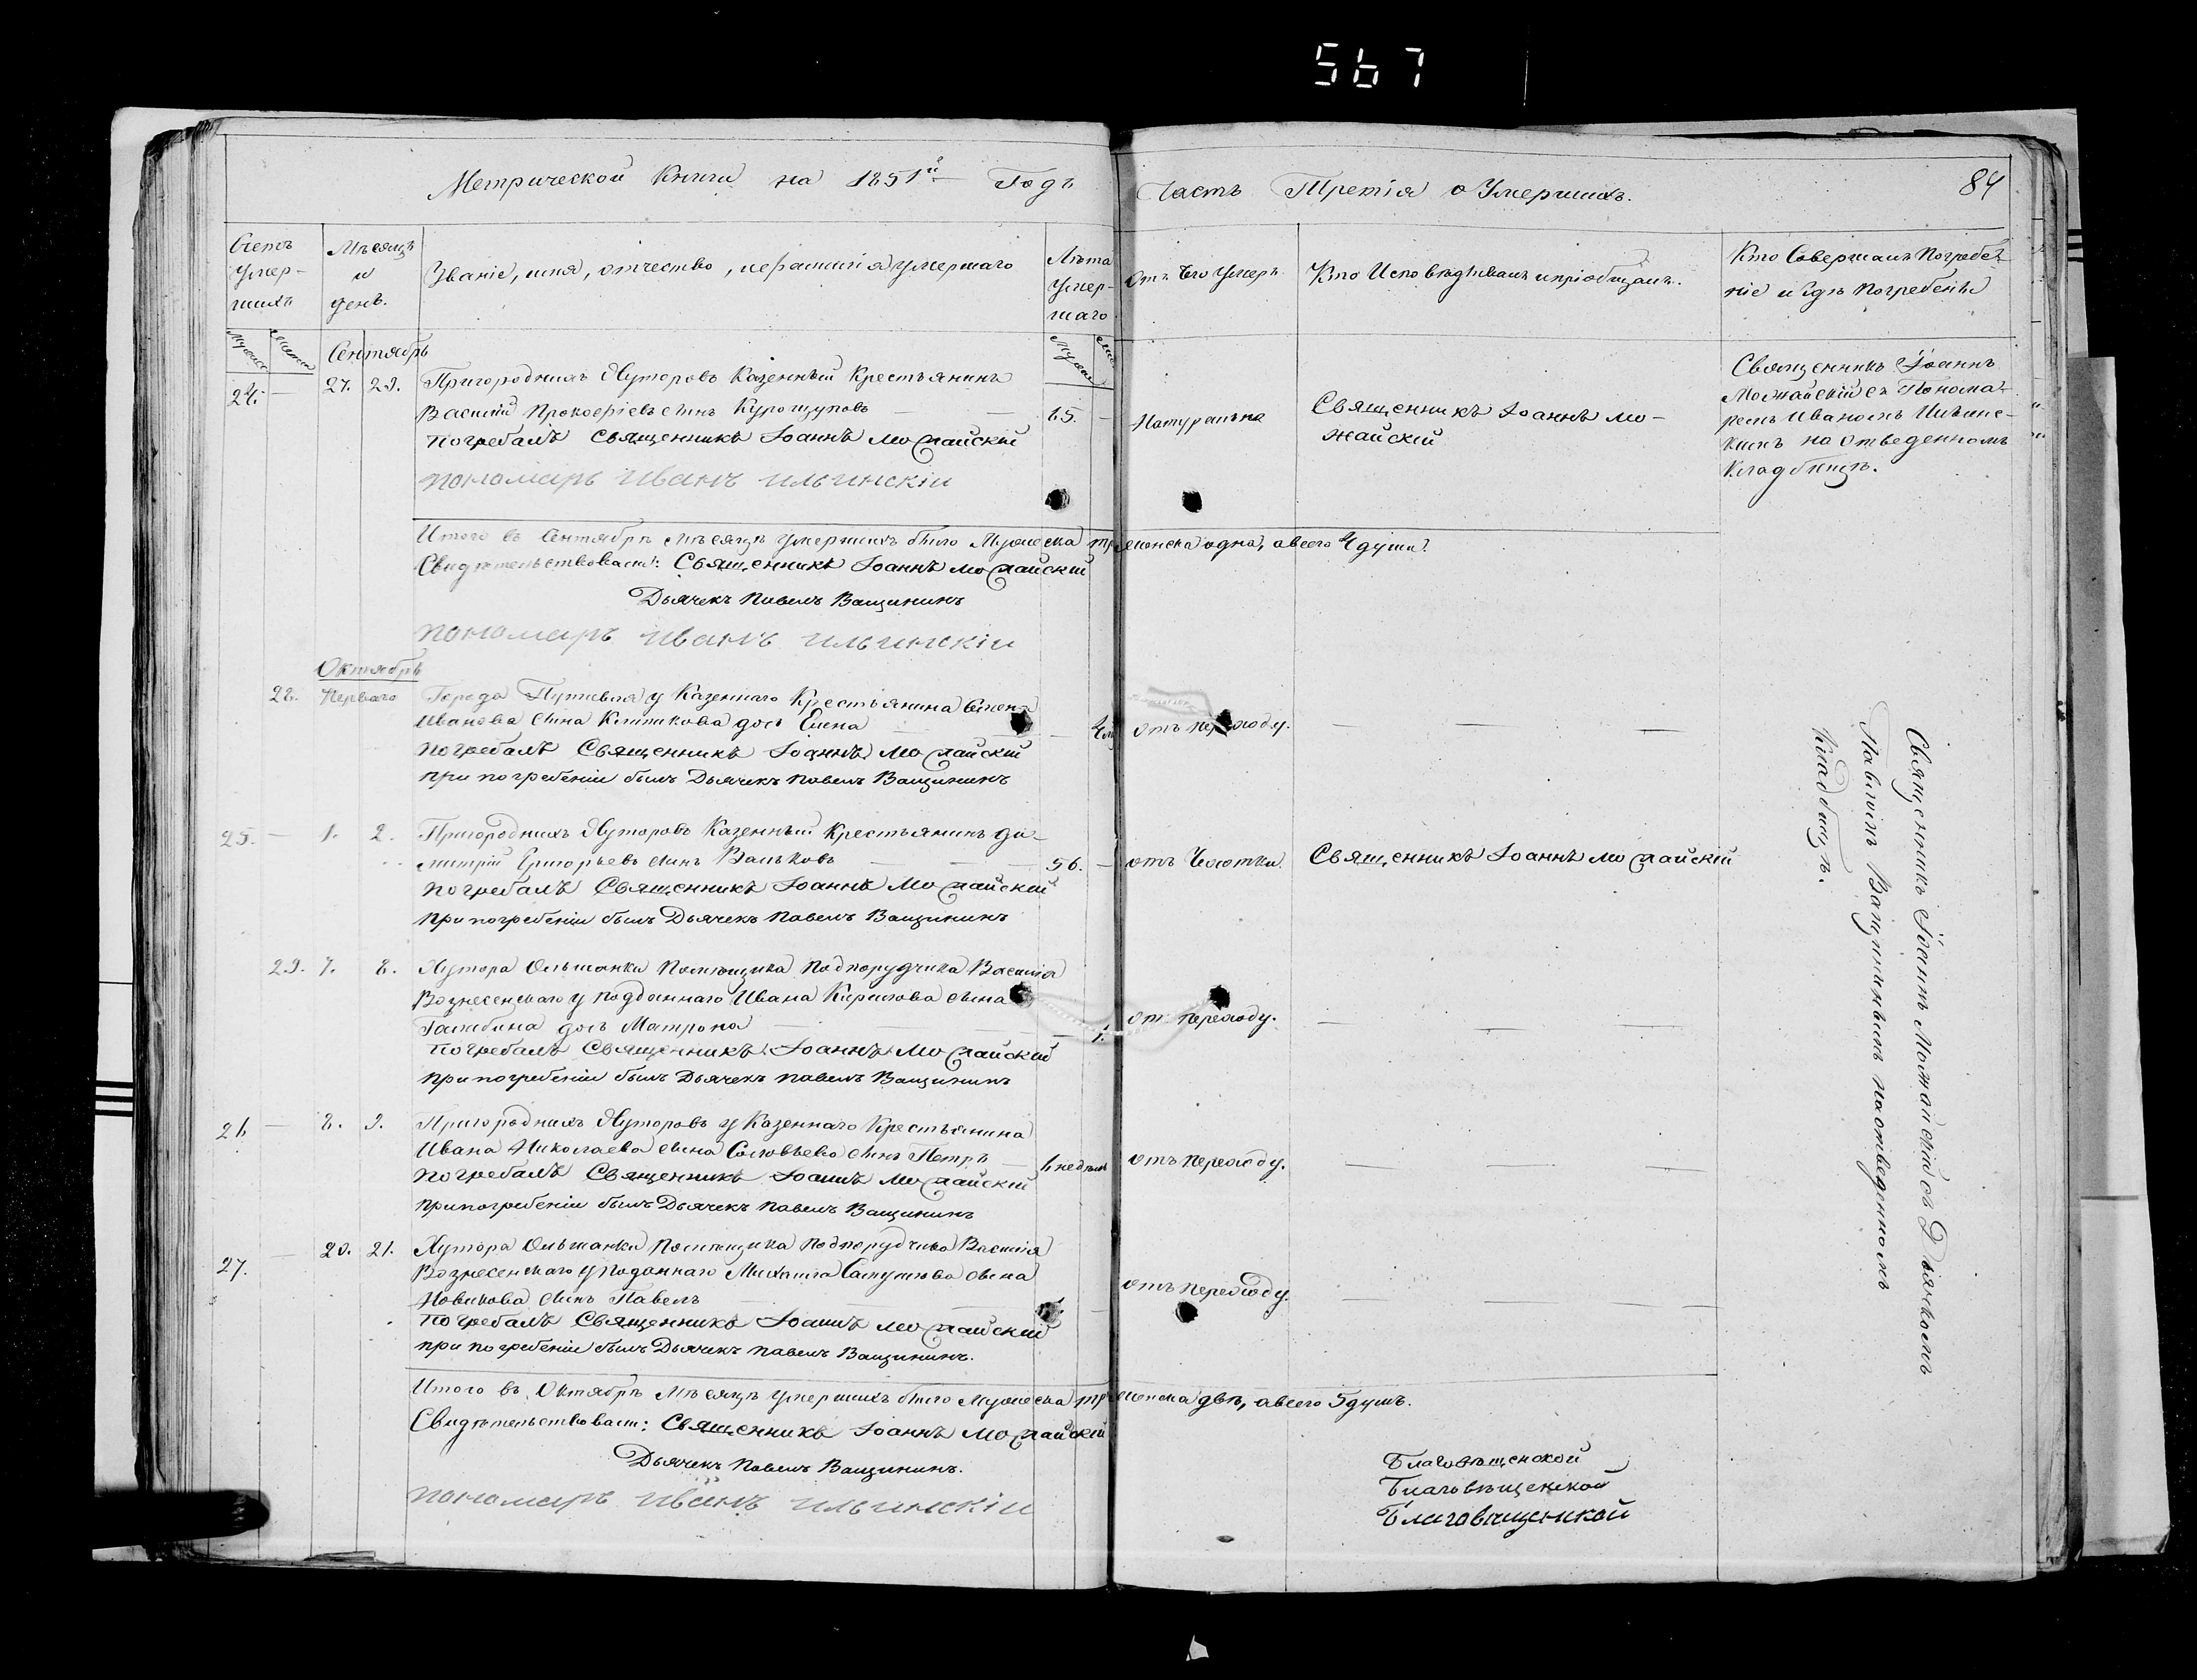 567
Метрической Книги на 1851й Годъ
Часть Третія о Умершихъ.
84
Счетъ Умер-шихъ
Мѣсяцъ и день.
Званіе, имя, отчество, и фамилія умершаго
Лѣта Умер-шаго
Отъ Чего умеръ
Кто Исповѣдывалъ и пріобщалъ.
Кто Совершалъ Погребе-ніе и гдѣ погребены
Сентябрь
24. — 27. 29. Пригородныхъ Хуторовъ Казенный Крестьянинъ
Василій Прокофіевъ сынъ Курощуповъ — 65. —
Натурально
Священникъ Іоаннъ Мо-
жайскій
Священникъ Іоаннъ
Можайскій съ Понома-
ремъ Иваномъ Ильинс-
кимъ на отведенномъ
Кладбищѣ.
погребалъ Священникъ Іоаннъ Можайскій
пономарь Иванъ Ильинскіи
Итого въ Сентябрѣ Мѣсяцѣ умершихъ было Мужеска женска одна, а всего 4 души.
Свидѣтельствовали: Священникъ Іоаннъ Можайскій
Дьячекъ Павелъ Ващининъ
пономарь Иванъ Ильинскіи
Октябрь
28. Перваго Города Путивля у Казеннаго Крестьянина
Иванова сына дочь Елена —
отъ переходу. — — —
погребалъ Священникъ Іоаннъ Можайскій
при погребеніи былъ Дьячекъ Павелъ Ващининъ
25. — 1. 2. Пригородныхъ Хуторовъ Казенный Крестьянинъ Ди-
митрій Григорьевъ сынъ Вальковъ — — — 56. — отъ Чахотки. Священникъ Іоаннъ Можайскій
погребалъ Священникъ Іоаннъ Можайскій
при погребеніи былъ Дьячекъ Павелъ Ващининъ
29. 7. 8. Хутора Ольшанки Помѣщика Подпорудчика Василія
Вознесенскаго у подданнаго Ивана Кирилова сына
дочь Матрона — — 1. отъ переходу. — — —
погребалъ Священникъ Іоаннъ Можайскій
при погребеніи былъ Дьячекъ Павелъ Ващининъ
26 — 8. 9. Пригородныхъ Хуторовъ у Казеннаго Крестьянина
Ивана Николаева сына Соловьева сынъ Петръ — недѣль отъ переходу. — — —
погребалъ Священникъ Іоаннъ Можайскій
при погребеніи былъ Дьячекъ Павелъ Ващининъ
27. — 20. 21. Хутора Ольшанки Помѣщика Подпорудчика Василія
Вознесенскаго у Поданнаго Михаила Самуилова сына
Новикова сынъ Павелъ — — — отъ переходу. — — —
погребалъ Священникъ Іоаннъ Можайскій
при погребеніи былъ Дьячекъ Павелъ Ващининъ.
Священникъ Іоаннъ Можайскій съ Дьячкомъ
Павломъ Ващининымъ на отведенномъ
Кладбищѣ.
Итого въ Октябрѣ Мѣсяцѣ умершихъ было Мужеска женска двѣ, а всего 5 душъ.
Свидѣтельствовали: Священникъ Іоаннъ Можайскій
Дьячекъ Павелъ Ващининъ.
пономарь Иванъ Ильинскіи
Благовѣщенской
Благовѣщенской
Благовѣщенской